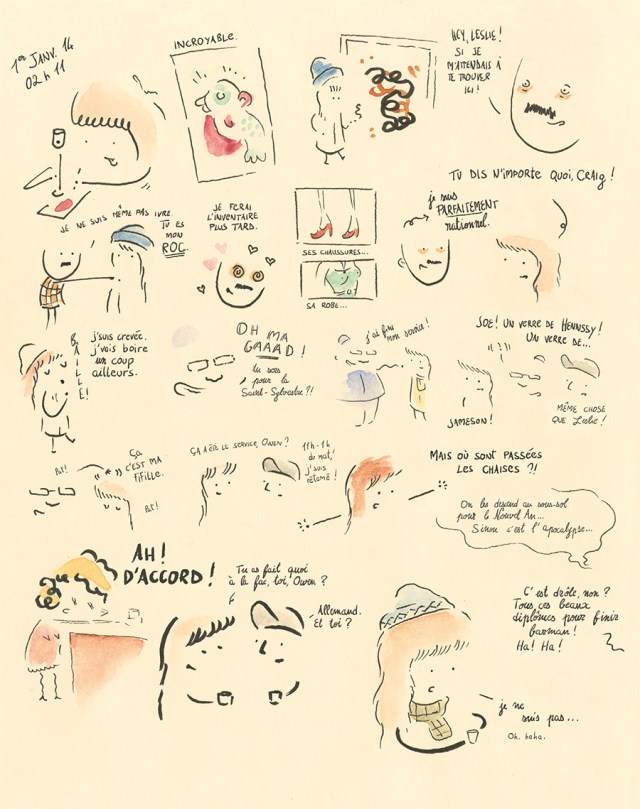 1er JANV. 14
02 h 11
INCROYABLE.
HEY, LESLIE!
SI JE
M'ATTENDAIS À
TE TROUVER
ICI!
JE NE SUIS MÊME PAS IVRE.
TU ES
MON
ROC.
JE FERAI
L'INVENTAIRE
PLUS TARD.
SES CHAUSSURES...
SA ROBE...
TU DIS N'IMPORTE QUOI, CRAIG!
je suis
PARFAITEMENT
rationnel.
BAILLE!
j'suis crevée.
j'vais boire
un coup
ailleurs.
OH MA
GAAAD!
Tu sors
pour la
Saint-Sylvestre?!
j'ai fini
mon service!
JAMESON!
JOE! UN VERRE DE HENNSSY!
UN VERRE DE...
MÊME CHOSE
QUE Leslie!
Pat!
Ça
C'EST MA
FIFILLE.
Pat!
ÇA A ÉTÉ LE SERVICE, OWEN?
11h - 1h
du mat'
j'suis
rétamé!
MAIS OÙ SONT PASSÉES
LES CHAISES?!
On les descend au sous-sol
pour le Nouvel An...
Sinon c'est l'apocalypse...
AH!
D'ACCORD!
Tu as fait quoi
à la fac, toi, Owen?
Allemand.
Et toi?
C'est drôle, non?
Tous ces beaux
diplômes pour finir
barman!
Ha! Ha!
je ne
suis pas...
Oh. haha.